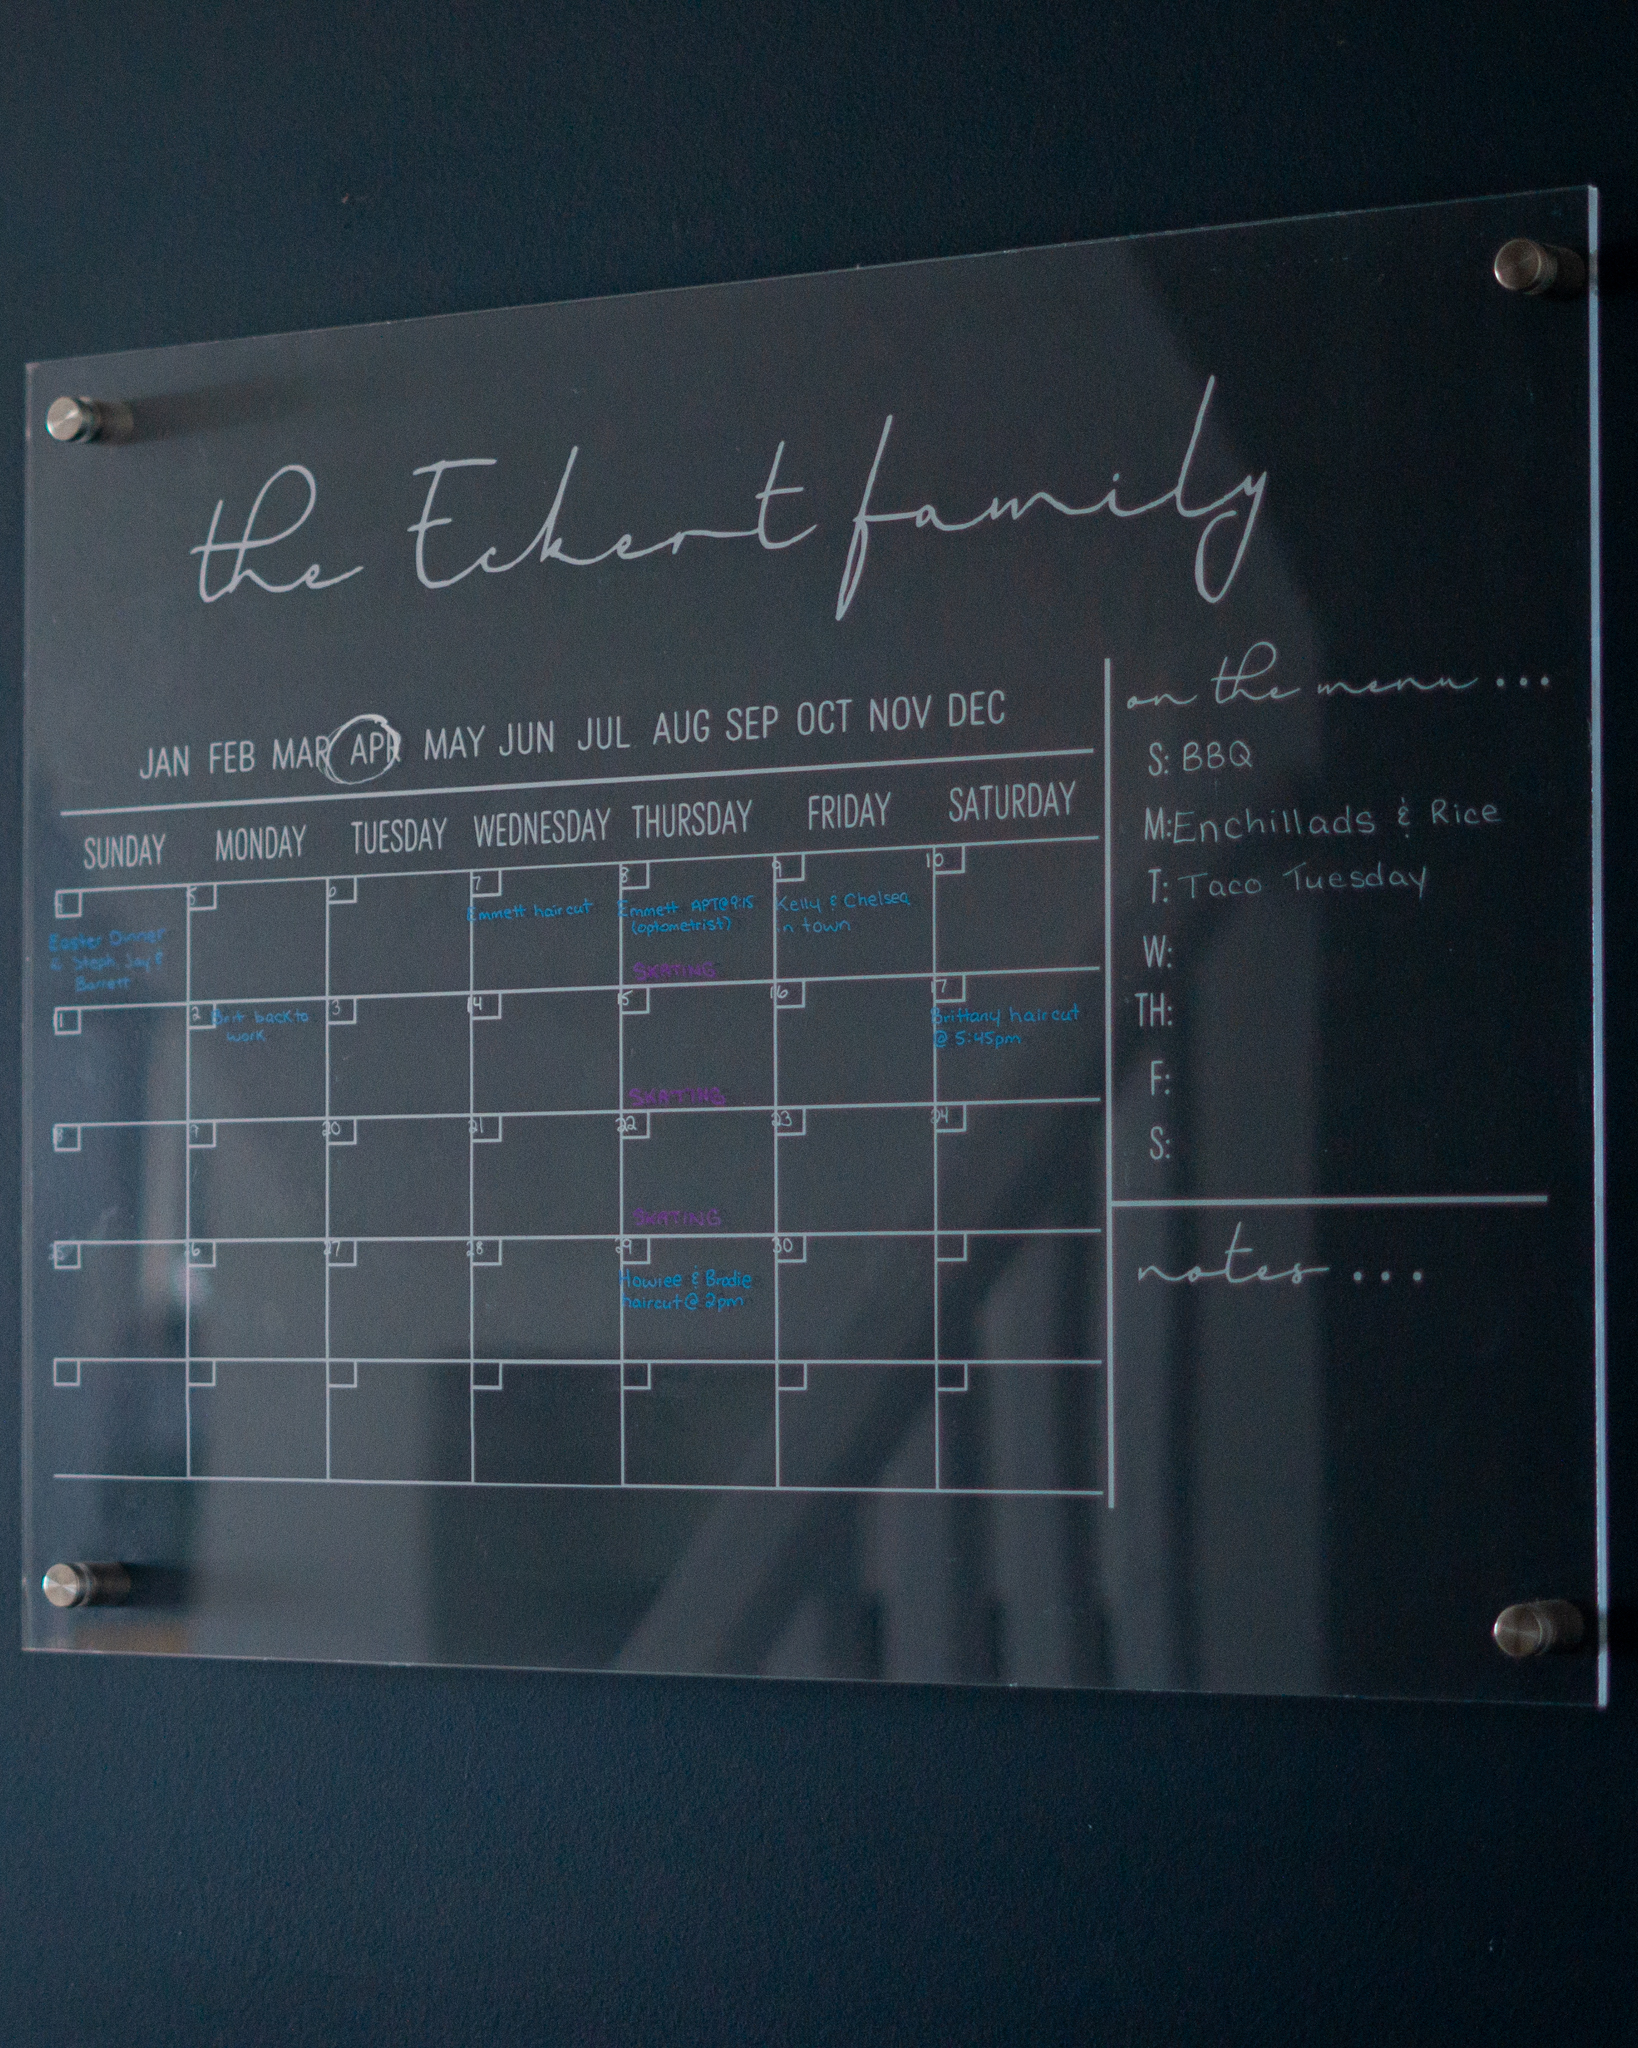 the Eckert family
JAN FEB MAR APR MAY JUN JUL AUG SEP OCT NOV DEC
SUNDAY MONDAY TUESDAY WEDNESDAY THURSDAY FRIDAY SATURDAY
4 5 6 7 8 9 10
Easter Dinner
Steph, Jay &
Barrett
Emmett haircut
Emmett APT@9:15
(optometrist)
SKATING
Kelly & Chelsea
in town
1 2 3 14 15 16 17
Brit back to
work
SKATING
Brittany haircut
@ 5:45pm
8 9 20 21 22 23 24
SKATING
25 26 27 28 29 30
Howiee & Brodie
haircut @ 2pm
on the menu ...
S: BBQ
M: Enchillads & Rice
T: Taco Tuesday
W:
TH:
F:
S:
notes ...